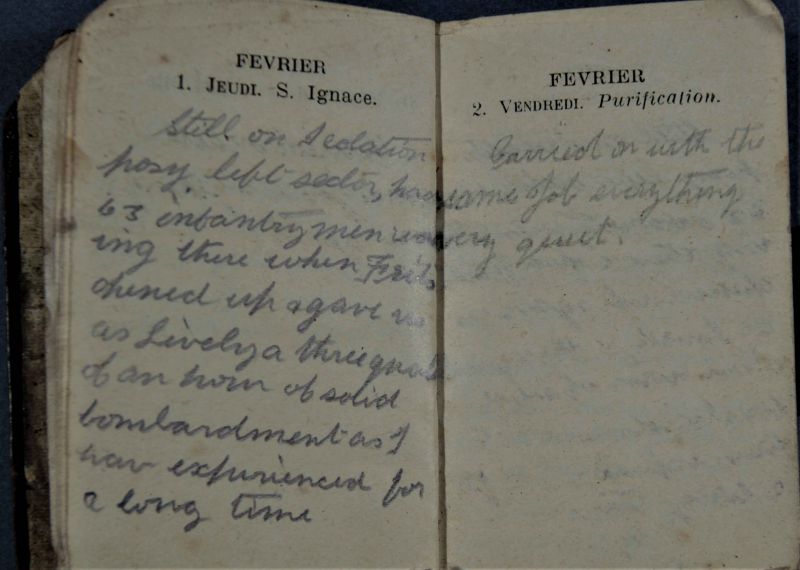 FEVRIER
1. JEUDI. S. Ignace.
Still on
left sector, had
63 infantrymen
ing there when Fritz
opened up & gave us
as lively a three
of an hour of solid
bombardment as I
hav experienced for
a long time
FEVRIER
2. VENDREDI. Purification.
Carried on with the
same job everything
very quiet.